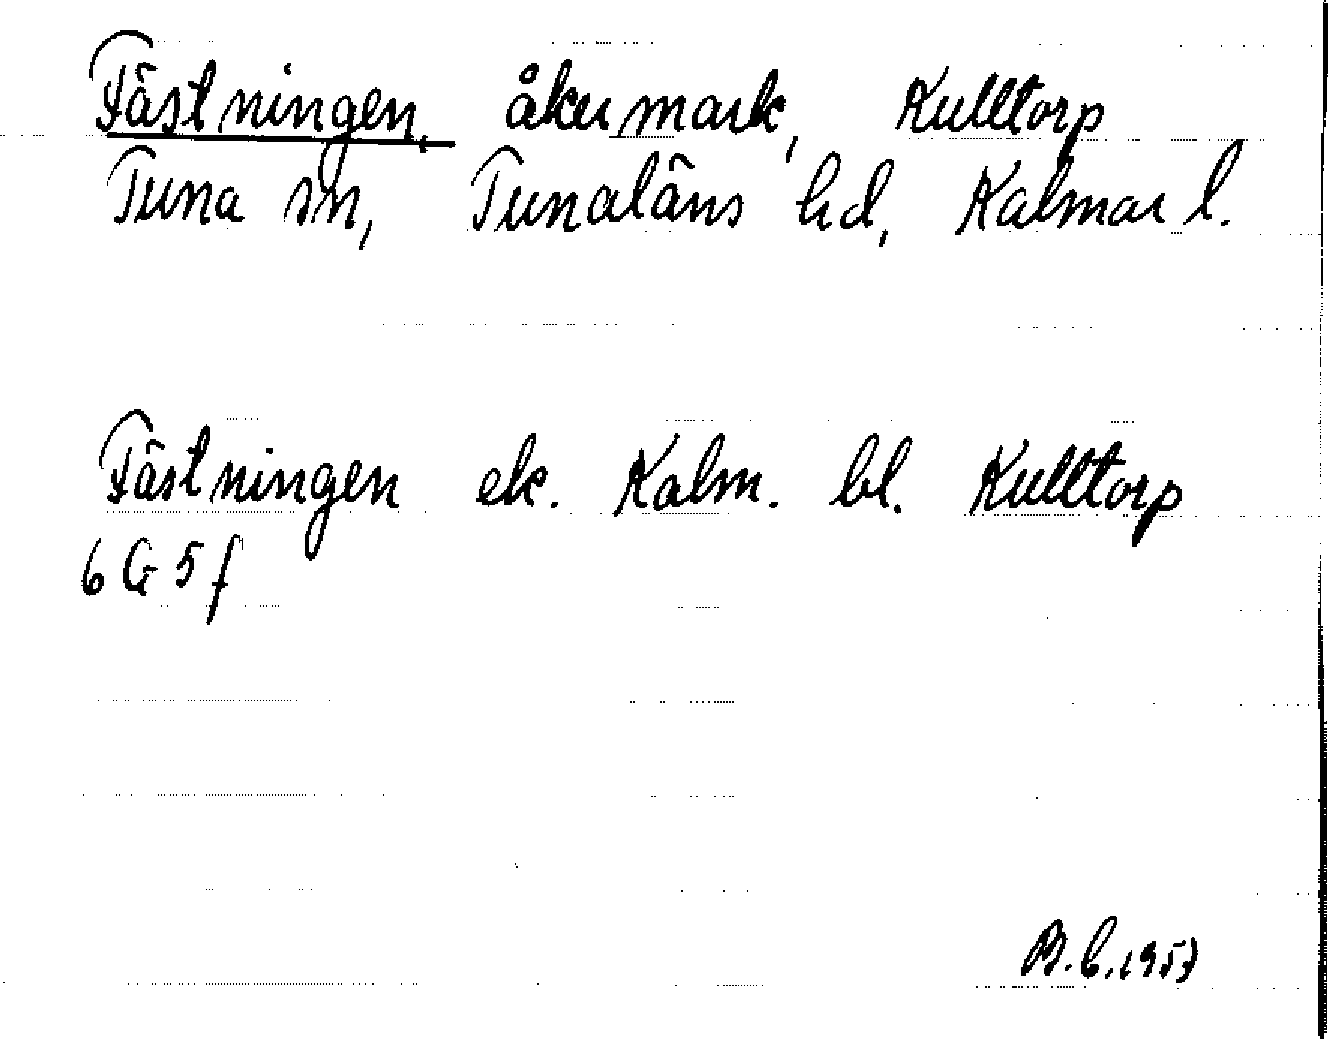 Fästningen, åkermark, Kulltorp
Tuna sn, Tunaläns hd, Kalmar l.
Fästningen ek. Kalm. bl. Kulltorp
6 G 5 f
B.b. 1957